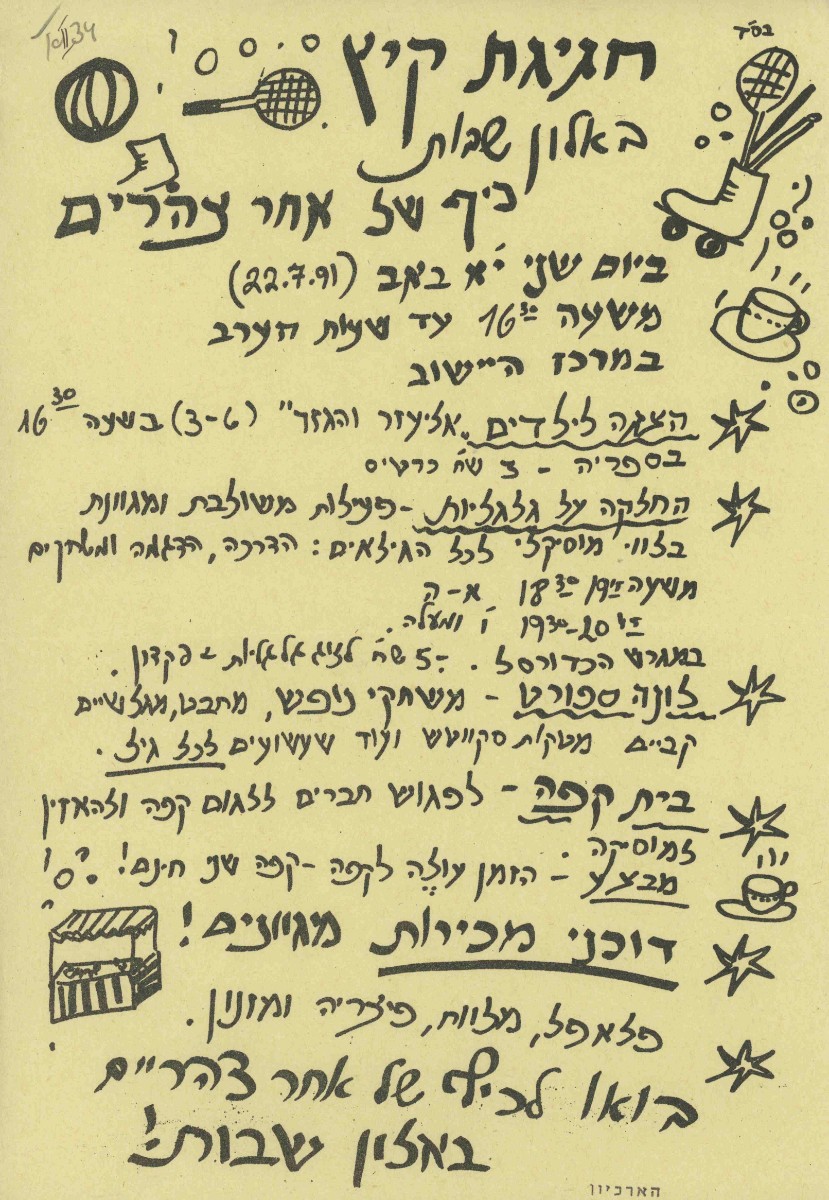 בס"ד
חגיגת קיץ
באלון שבות
כיף של אחר צהרים
ביום שני י"א באב (22.7.91)
משעה 16³⁰ עד שעות הערב
במרכז היישוב
הצגה לילדים "אליעזר והגזר" (3-6) בשעה 16³⁰
בספריה - 3 ש"ח כרטיס
החלקה על גלגליות - פעילות משולבת ומגוונת
בלווי מוסיקלי לכל הגילאים: הדרכה, הדגמה ומשחקים
משעה 18³⁰ א-ה
19³⁰-20 ו' ומעלה.
במגרש הכדורסל. 5- ש"ח לזוג גלגליות + פקדון.
לונה ספורט - משחקי נופש, מחבט,
קביים מטקות סקווטש ועוד שעשועים לכל גיל.
בית קפה - לפגוש חברים ללגום קפה ולהאזין
למוסיקה.
מבצע - הזמן עוגה לקפה - קפה שני חינם!
דוכני מכירות מגוונים!
פלאפל, מלווח, פיצריה ומזנון.
בואו לכיף של אחר צהריים
באלון שבות!
הארכיון